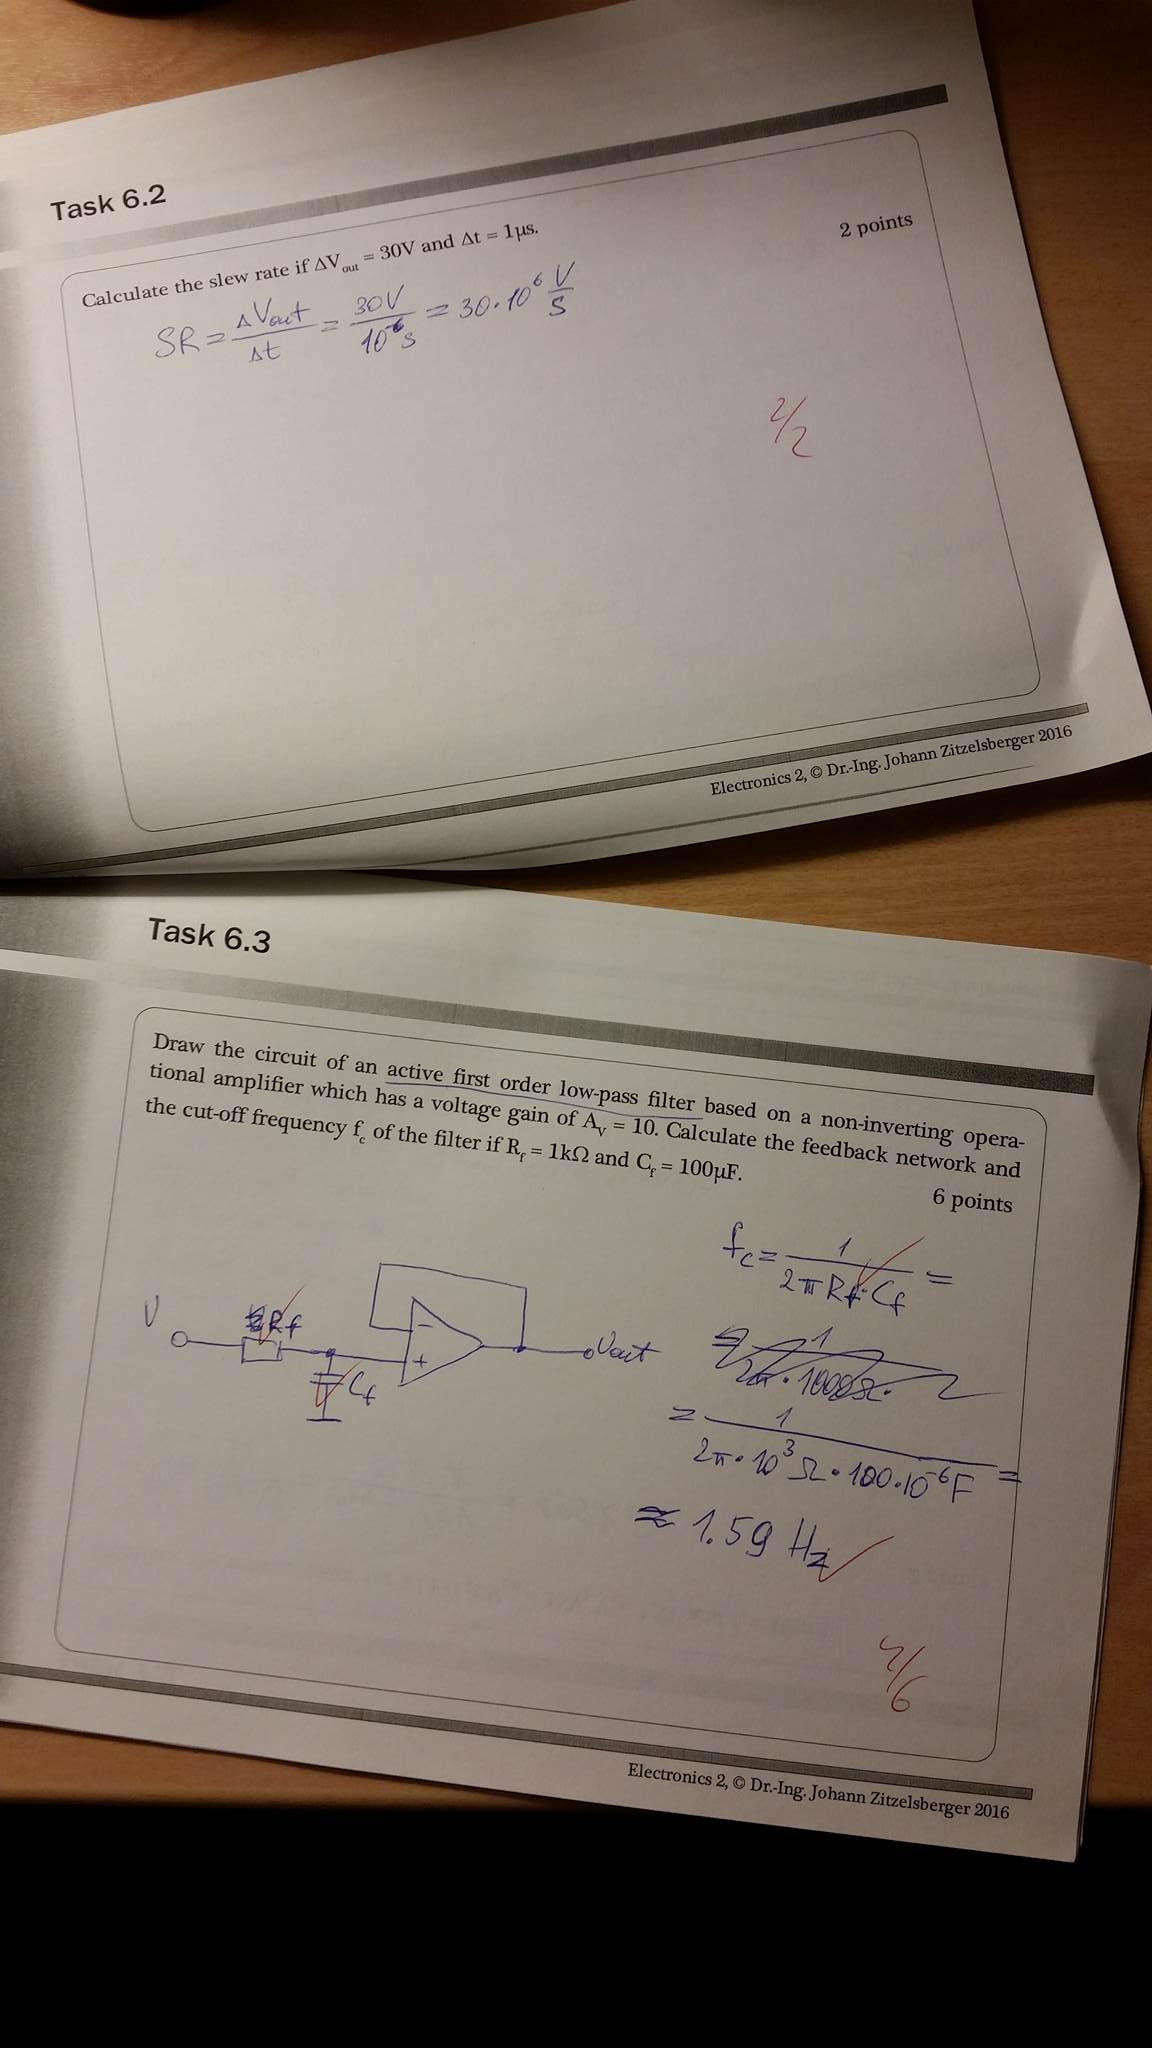 Task 6.2
Calculate the slew rate if ΔVout = 30V and Δt = 1μs.
2 points
SR = ΔVout/Δt = 30V/10⁻⁶s = 30·10⁶ V/S
2/2
Electronics 2, © Dr.-Ing. Johann Zitzelsberger 2016
Task 6.3
Draw the circuit of an active first order low-pass filter based on a non-inverting opera-
tional amplifier which has a voltage gain of Av = 10. Calculate the feedback network and
the cut-off frequency fc of the filter if Rf = 1kΩ and Cf = 100μF.
6 points
fc = 1/(2π Rf·Cf) =
V
Rf
- 
+
Vout
Cf
= 1/(2π·10³Ω·100·10⁻⁶F) =
≈ 1.59 Hz
/6
Electronics 2, © Dr.-Ing. Johann Zitzelsberger 2016